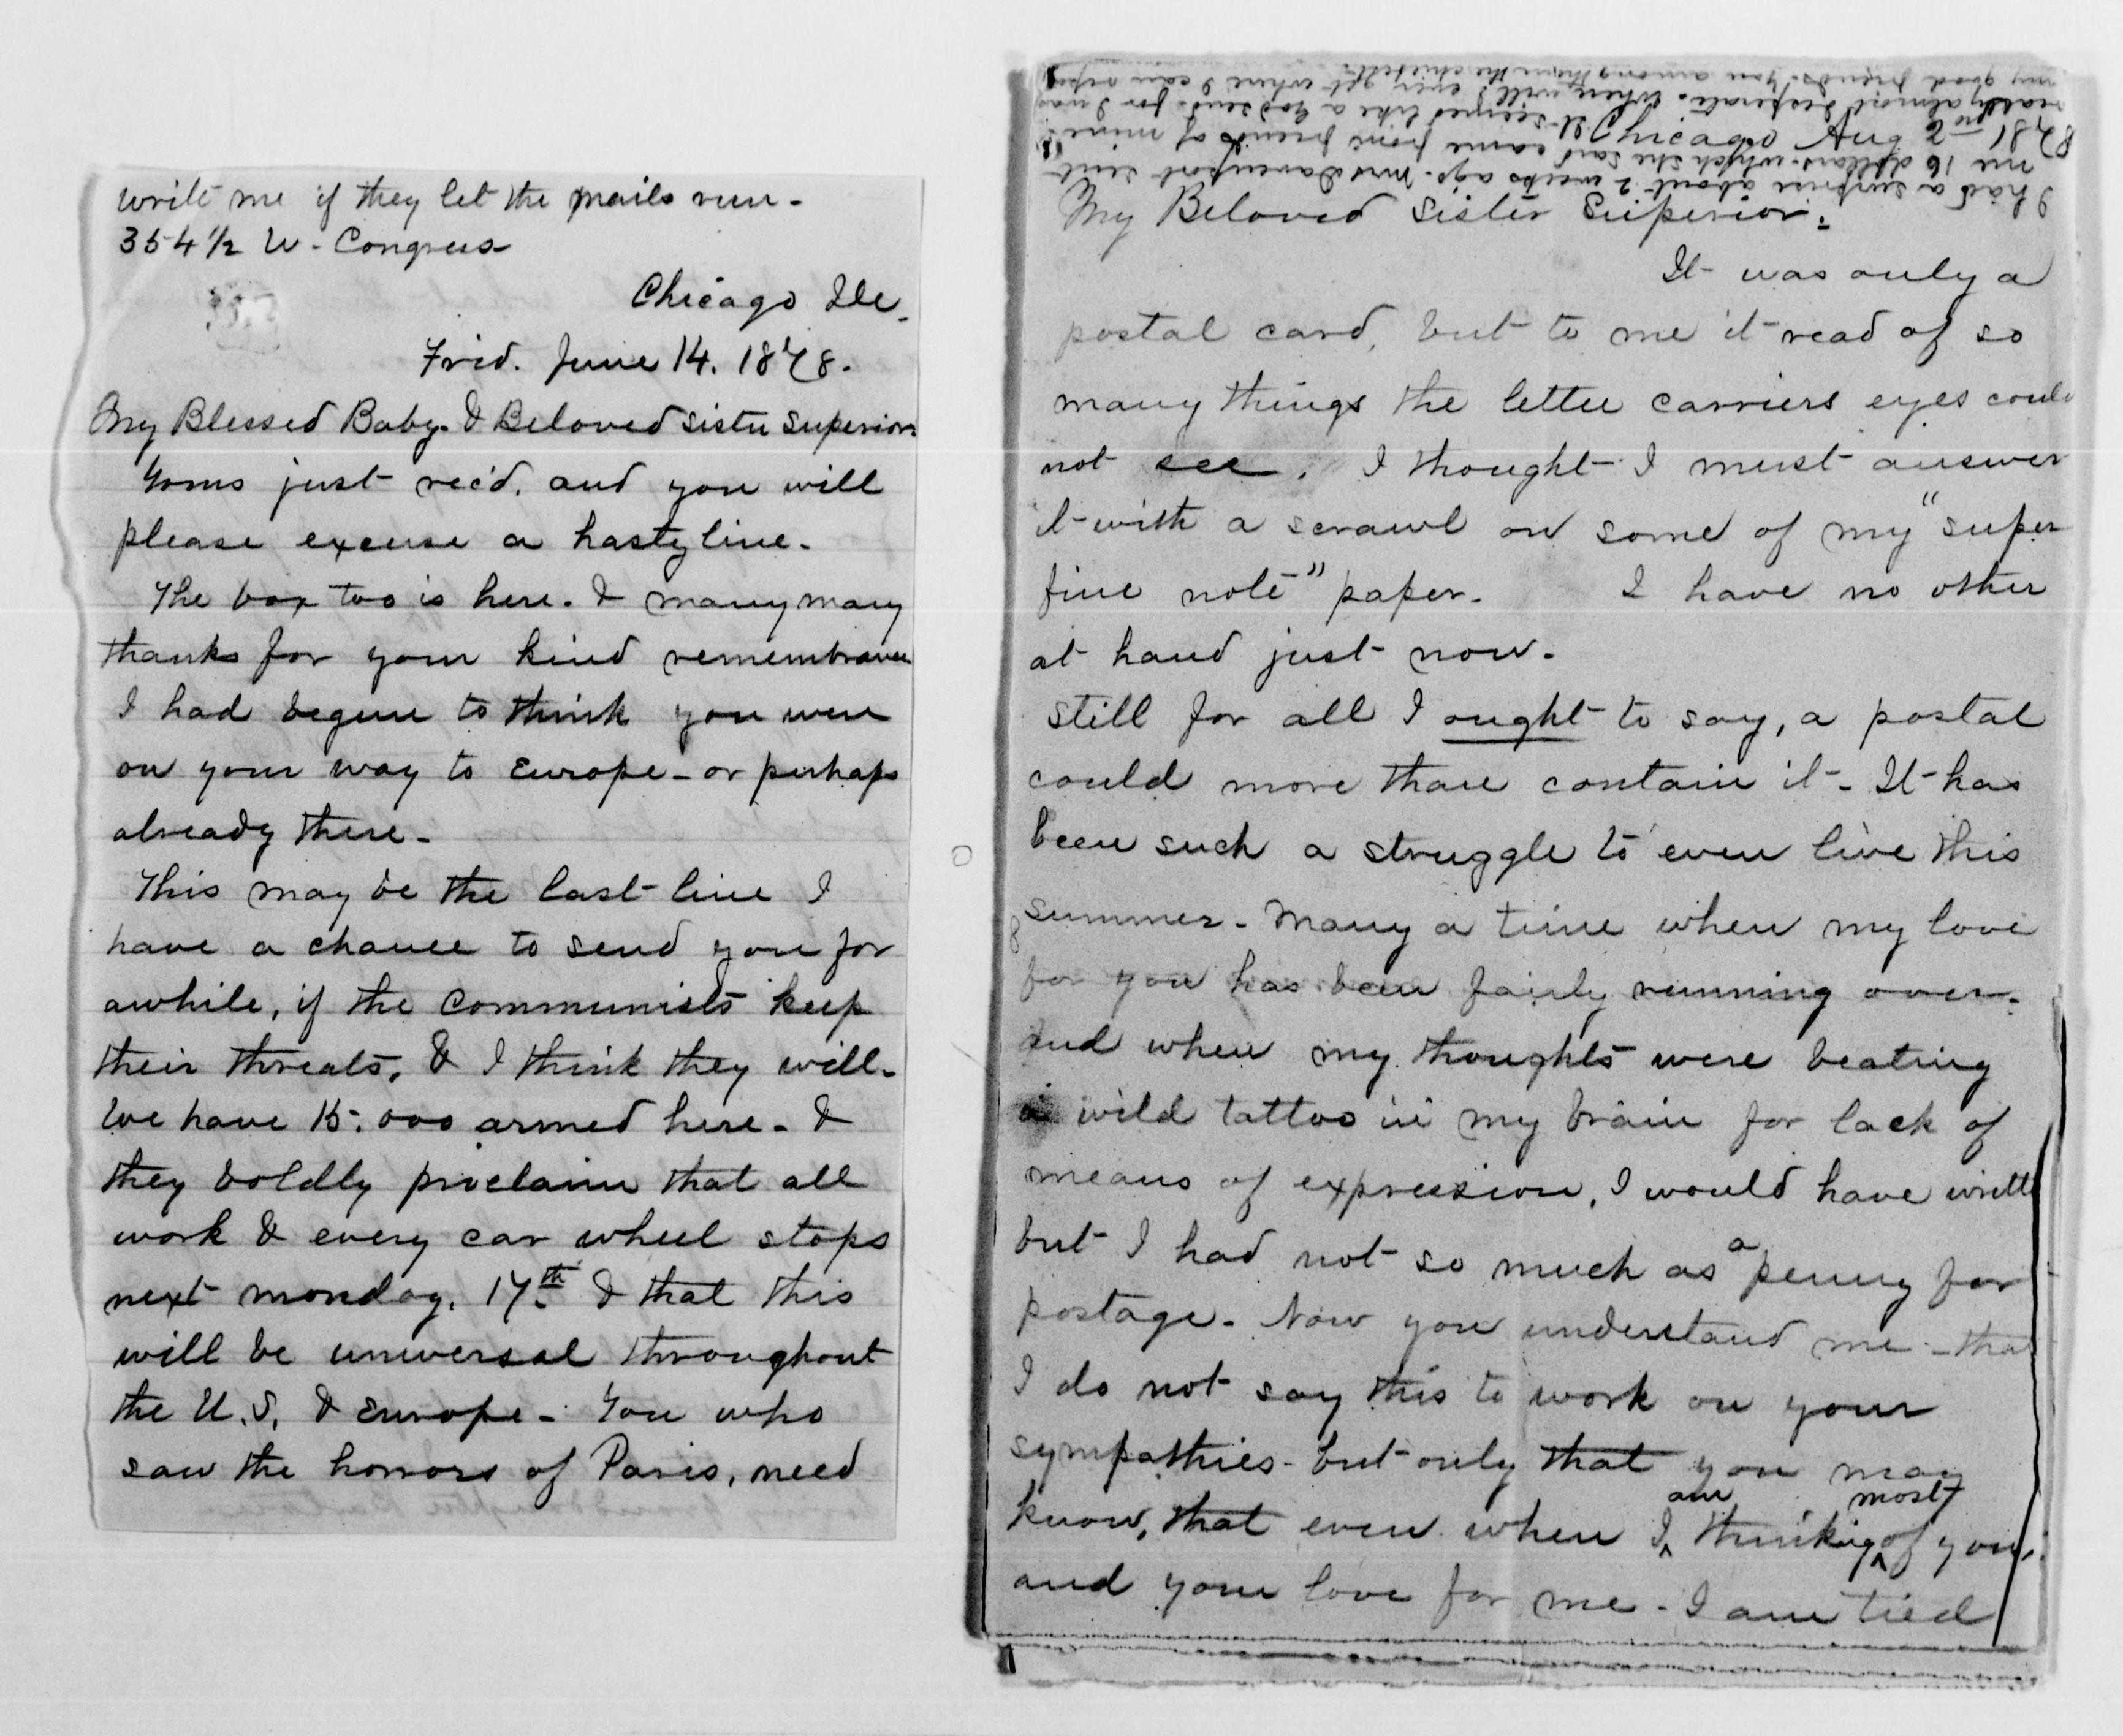 write me if they let the mails run -
354 1/2 W - Congress
Chicago Ill.
Frid. June 14. 1878.
My Blessed Baby - & Beloved Sister Superior.
Yours just rec'd. and you will
please excuse a hasty line.
The box too is here. & many many
thanks for your kind remembrance
I had begun to think you were
on your way to Europe - or perhaps
already there -
This may be the last line I
have a chance to send you for
awhile, if the Communists keep
their threats, & I think they will.
We have 15.000 armed here - &
they boldly proclaim that all
work & every car wheel stops
next monday. 17th & that this
will be universal throughout
the U.S. & Europe - You who
saw the horrors of Paris, need
I had a surprise about 2 weeks ago. Mrs Davenport sent
me 16 dollars - which she said came from friends of mine.
It seemed like a God send - for I was
really almost desperate. When will I ever get where I can repay
my good friends. You among them the chiefest.
Chicago Aug 2nd
/78
My Beloved Sister Superior:
It was only a
postal card, but to me it read of so
many things the letter carriers eyes could
not see. I thought I must answer
it with a scrawl on some of my "super
fine note" paper. I have no other
at hand just now.
Still for all I ought to say, a postal
could more than contain it - It has
been such a struggle to even live this
summer. Many a time when my love
for you has been fairly running over.
and when my thoughts were beating
a wild tattoo in my brain for lack of
means of expression, I would have writte
but I had not so much as a penny for
postage. Now you understand me - that
I do not say this to work on your
sympathies - but only that you may
know, that even when I am thinking most of you,
and your love for me - I am tied